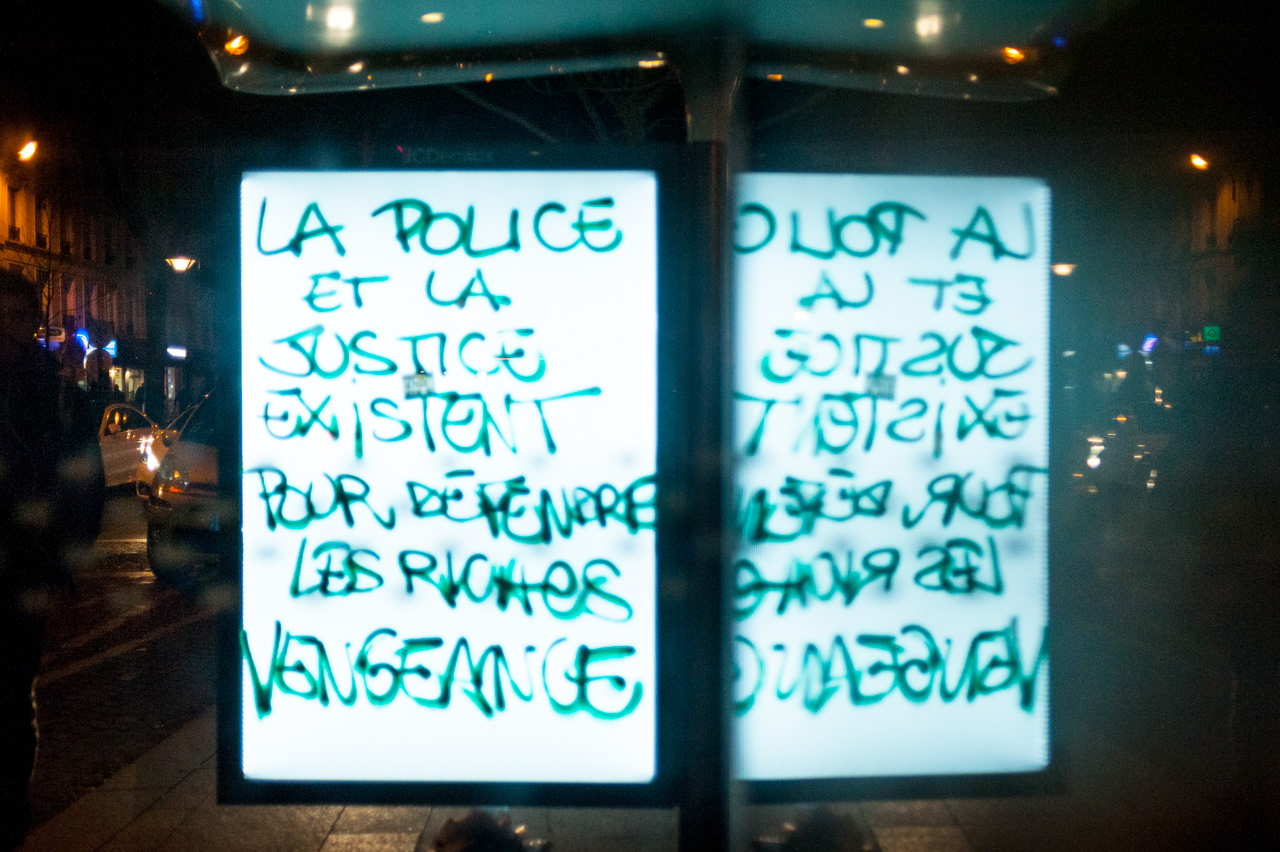 JCDecaux
LA POLICE
ET LA
JUSTICE
EXiSTENT
POUR DÉFENDRE
LES RICHES
VENGEANCE